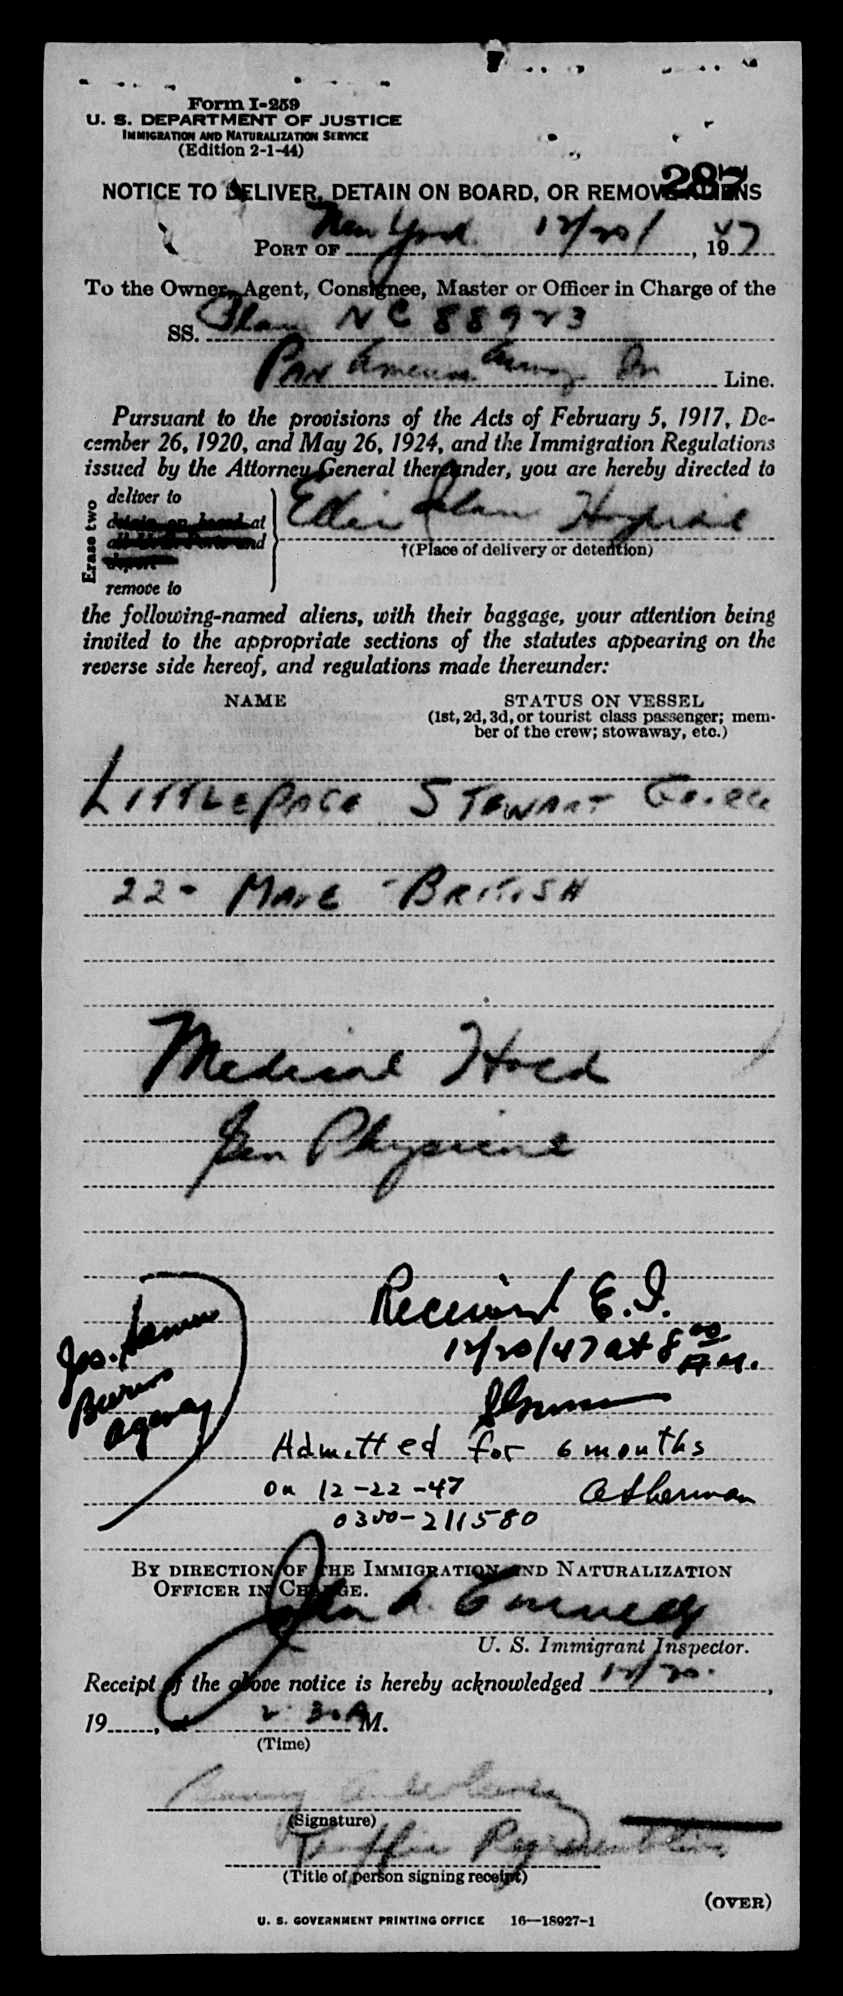 Form I-259
U. S. DEPARTMENT OF JUSTICE
IMMIGRATION AND NATURALIZATION SERVICE
(Edition 2-1-44)
287
NOTICE TO DELIVER, DETAIN ON BOARD, OR REMOVE ALIENS
PORT OF New York 12/20/, 1947
To the Owner, Agent, Consignee, Master or Officer in Charge of the
SS. Plane NC 88923
Pan American Line.
Pursuant to the provisions of the Acts of February 5, 1917, De-
cember 26, 1920, and May 26, 1924, and the Immigration Regulations
issued by the Attorney General thereunder, you are hereby directed to
Erase two
deliver to
detain on board at
remove to
Ellis Island Hospital
†(Place of delivery or detention)
the following-named aliens, with their baggage, your attention being
invited to the appropriate sections of the statutes appearing on the
reverse side hereof, and regulations made thereunder:
NAME STATUS ON VESSEL
(1st, 2d, 3d, or tourist class passenger; mem-
ber of the crew; stowaway, etc.)
LITTLEPAGE STEWART
22- MALE - BRITISH
Medical Hold
Gen Physical
Received E.I.
12/20/47 at 8 00 A.M.
Jos.
Agency
Admitted for 6 months
on 12-22-47 A Sherman
0300-211580
BY DIRECTION OF THE IMMIGRATION AND NATURALIZATION
OFFICER IN CHARGE.
U. S. Immigrant Inspector.
Receipt of the above notice is hereby acknowledged 12/20.,
19......, at 2 30 A M.
(Time)
(Signature)
Traffic Representative
(Title of person signing receipt)
(OVER)
U. S. GOVERNMENT PRINTING OFFICE 16—18927-1